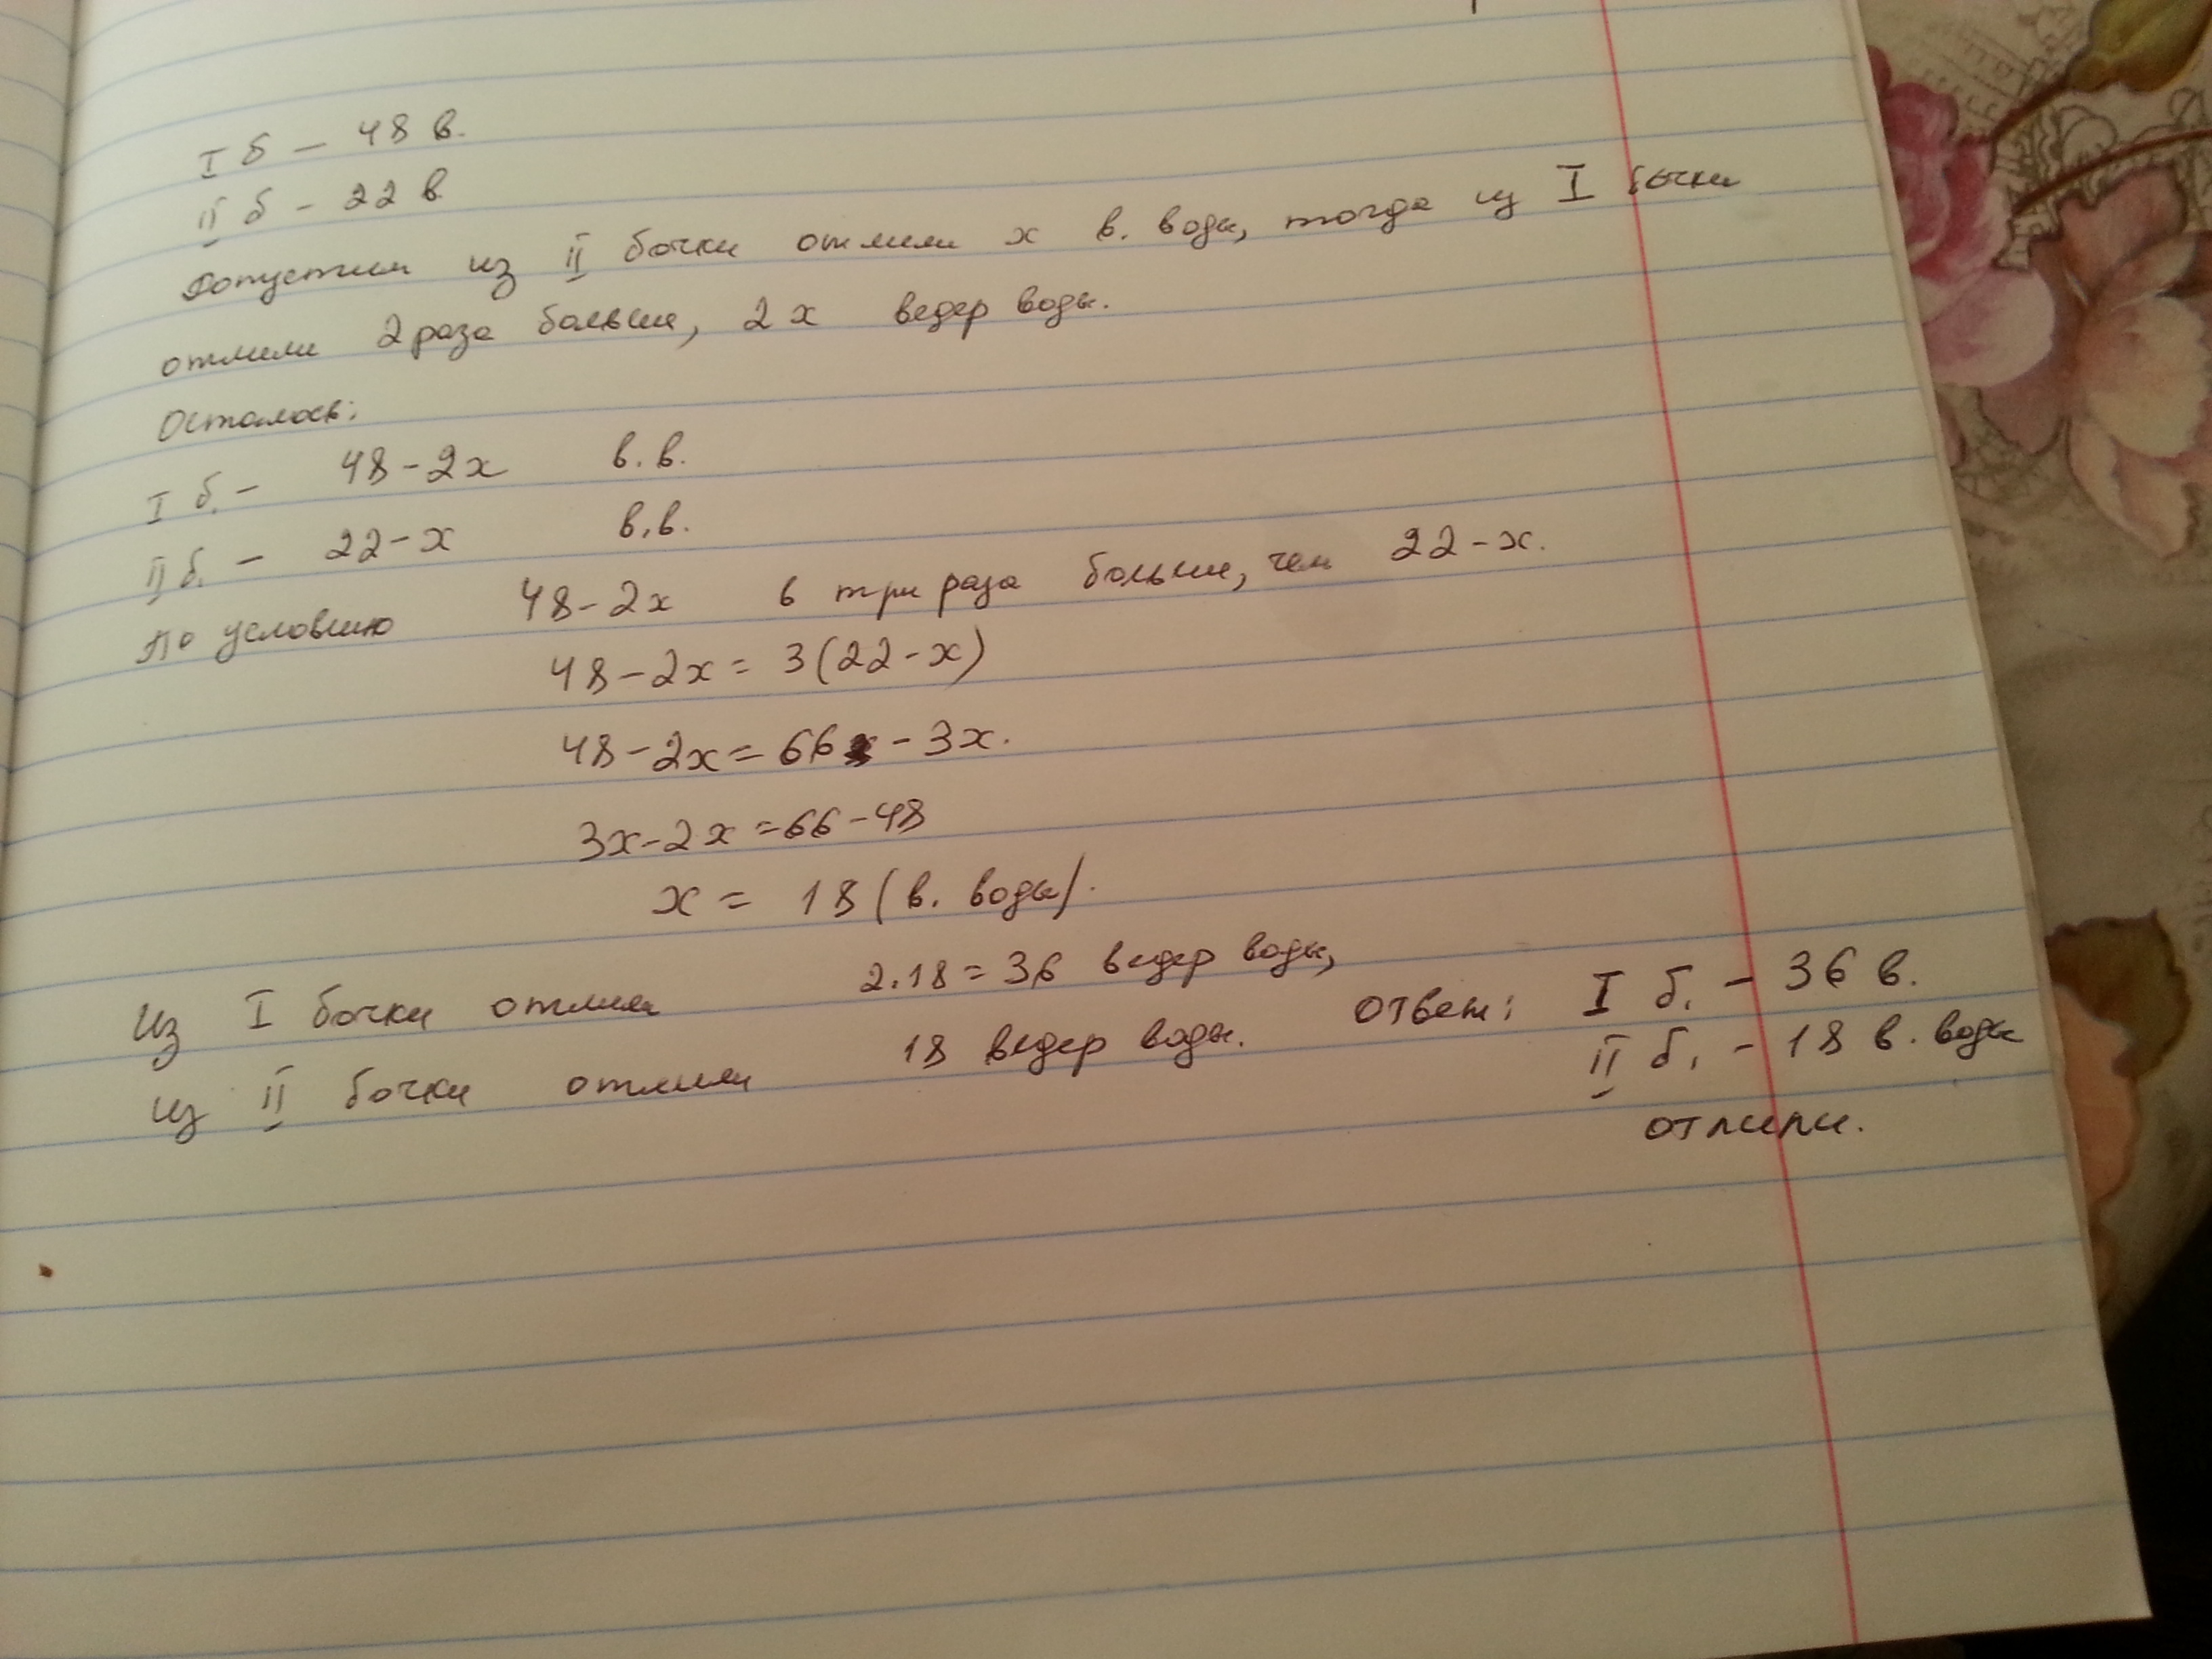 I б – 48 в.
II б – 22 в
Допустим из II бочки отлили x в. воды, тогда из I бочки
отлили 2 раза больше, 2x ведер воды.
Осталось:
I б. – 48-2x в.в.
II б. – 22-x в.в.
По условию 48-2x в три раза больше, чем 22-x.
48-2x = 3(22-x)
48-2x = 66 - 3x.
3x-2x = 66-48
x = 18 (в. воды).
Из I бочки отлили 2.18 = 36 ведер воды,
из II бочки отлили 18 ведер воды.
Ответ: I б. – 36 в.
II б. – 18 в. воды
отлили.